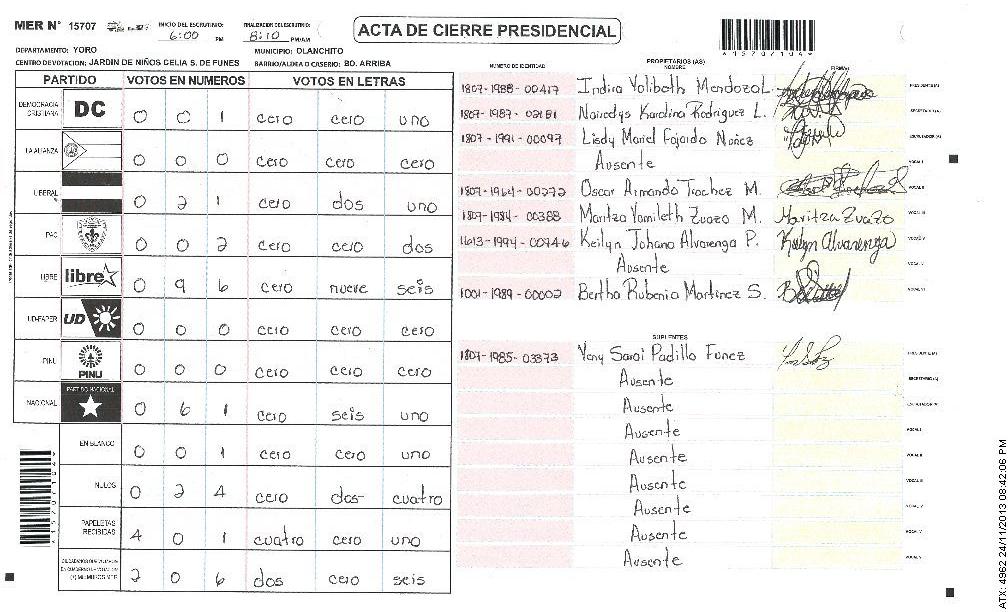 MER N° 15707 INICIO DEL ESCRUTINIO: 6:00 PM FINALIZACION DEL ESCRUTINIO: 8:10 PM/AM
ACTA DE CIERRE PRESIDENCIAL
DEPARTAMENTO: YORO MUNICIPIO: OLANCHITO
CENTRO DE VOTACION: JARDIN DE NIÑOS CELIA S. DE FUNES BARRIO/ALDEA O CASERIO: BO. ARRIBA
PARTIDO VOTOS EN NUMEROS VOTOS EN LETRAS
DEMOCRACIA CRISTIANA DC 0 0 1 cero cero uno
LA ALIANZA 0 0 0 cero cero cero
LIBERAL 0 2 1 cero dos uno
PAC 0 0 2 cero cero dos
LIBRE libre 0 9 6 cero nueve seis
UD-FAPER UD 0 0 0 cero cero cero
PINU PINU 0 0 0 cero cero cero
NACIONAL PARTIDO NACIONAL 0 6 1 cero seis uno
EN BLANCO 0 0 1 cero cero uno
NULOS 0 2 4 cero dos cuatro
PAPELETAS RECIBIDAS 4 0 1 cuatro cero uno
(+) MIEMBROS MER 2 0 6 dos cero seis
NUMERO DE IDENTIDAD PROPIETARIOS (AS) NOMBRE FIRMA(s)
1807-1988-00417 Indira Yolibeth Mendoza L. PRESIDENTE (A)
1807-1987-02151 Nairedys Karolina Rodriguez L. SECRETARIO (A)
1807-1991-00097 Lisdy Mariel Fajardo Nuñez ESCRUTADOR (A)
Ausente VOCAL I
1807-1964-00272 Oscar Armando Trochez M. VOCAL II
1807-1984-00388 Maritza Yamileth Zuazo M. Maritza Zuazo VOCAL III
1613-1994-00746 Keilyn Johana Alvarenga P. Keilyn Alvarenga VOCAL IV
Ausente VOCAL V
1001-1989-00002 Bertha Rubenia Martinez S. VOCAL VI
SUPLENTES
1807-1985-03373 Yeny Sarai Padilla Funez PRESIDENTE (A)
Ausente SECRETARIO (A)
Ausente ESCRUTADOR (A)
Ausente VOCAL I
Ausente VOCAL II
Ausente VOCAL III
Ausente VOCAL IV
Ausente VOCAL V
Ausente VOCAL VI
ATX: 4962 24/11/2013 08:42:06 PM